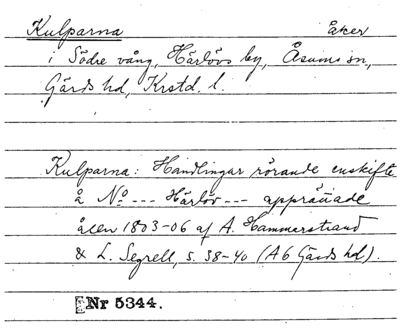 Kulparna åker
i Södre vång, Härlövs by, Åsums sn,
Gärds hd, Krstd. l.
Kulparna: Handlingar rörande enskifte
å No --- Härlöv --- upprättade
åren 1803-06 af A. Hammerstrand
& L. Segrell, s. 38-40 (A6 Gärds hd).
Nr 5344.